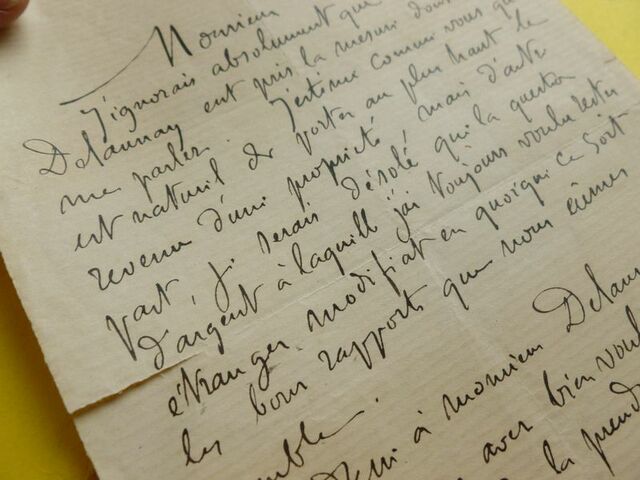 Monsieur
J'ignorais absolument que
Delaunay eut pris la mesure dont
me parler. J'estime comme vous qu
est naturel de porter au plus haut le
revenu d'une propriété, mais d'autre
part, je serais désolé que la question
d'argent à laquelle j'ai toujours voulu rester
étranger modifiat en quoique ce soit
les bons rapports que nous eûmes
emble.
à monsieur Delaun
avec bien voul
la prend